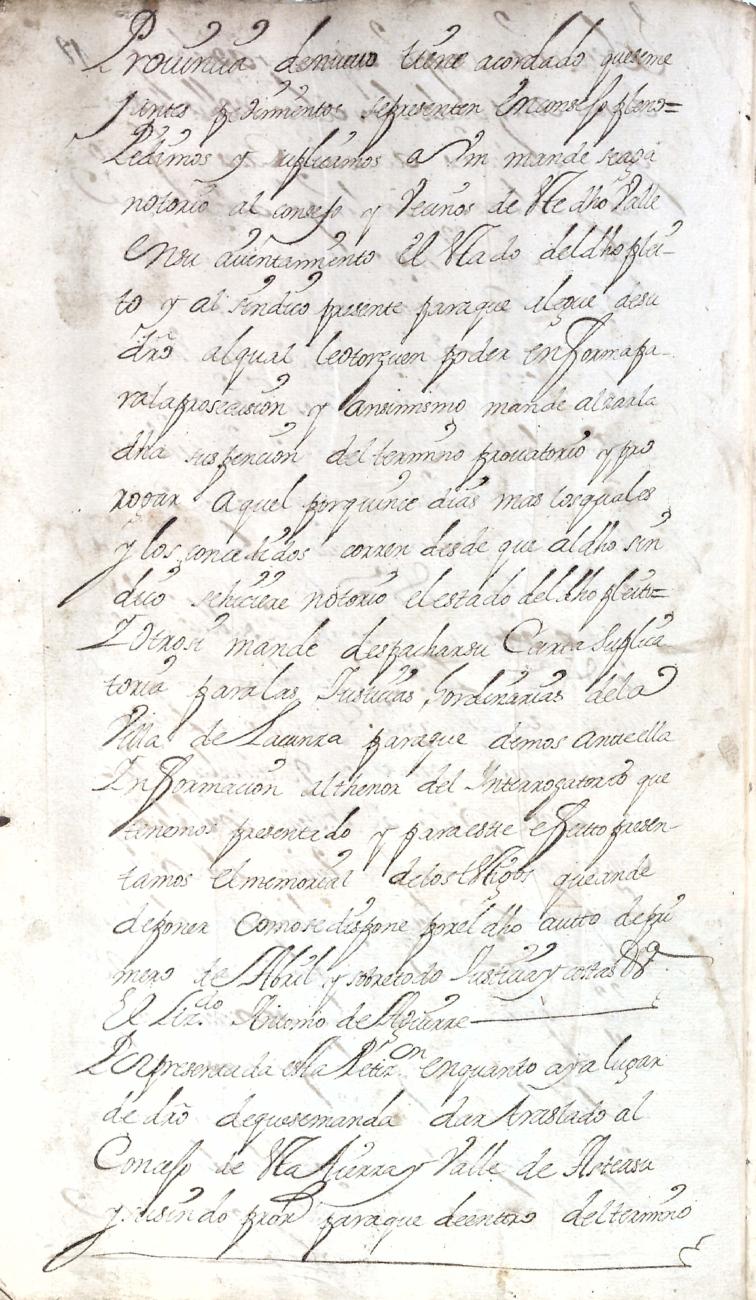 Prouinçia denueuo tiene acordado queseme
jantes pedimentos sepresenten enconsejo pleno=
Pedimos y suplicamos a Vm mande seaga
notorio al consejo y Veçinos de este dho Valle
ensu aiuntamiento el estado deldho plei-
to y al sindico presente paraque alegue desu
dro alqual leotorguen poder en forma pa-
ralaprosecusion y ansimismo mande alçarla
dha suspencion deltermino prouatorio y pro
rogar aquel porquince dias mas losquales
y los concedidos corren desde que aldho sin
dico sehiciere notorio elestado deldho pleito=
Yotrosi mande despacharsu Carta Suplica
toria paralas Justicias hordinarias dela
Villa de Lacunza paraque demos anteella
Informacion althenor del Interrogatorio que
tenemos presentado y paraeste efecto presen-
tamos elmemorial delostestigos queande
deponer comosedispone porel dho autto depri
mero de Abril y sobretodo Justicia y costas &ª
El Lizdo Antonio de Aguirre
Porpresentada esta Petizon enquanto aya lugar
de dro dequesemanda dar traslado al
Concejo de esta tierra y Valle de Asteasu
y susindo pror paraque deentro deltermino